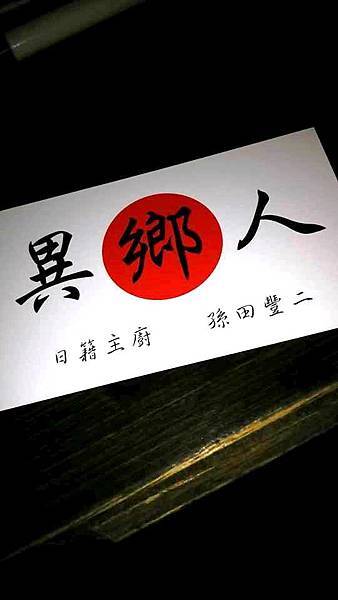 異鄉人
日籍主廚 孫田豐二